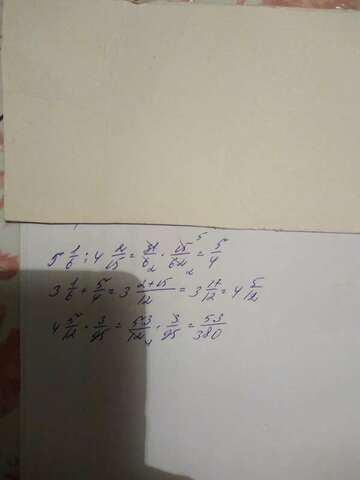 5 1/6 : 4 2/15 = 31/6 · 15/62 = 5/4
3 1/6 + 5/4 = 3 2+15/12 = 3 17/12 = 4 5/12
4 5/12 · 3/95 = 53/12 · 3/95 = 53/380